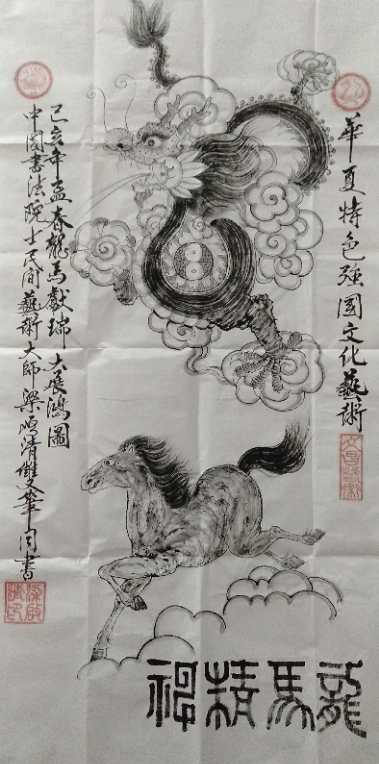 華夏特色强國文化藝術
己亥年孟春龍馬獻瑞大展鴻圖
中國書法院士民间藝術大師梁鸣清雙筆同書
龍馬精神